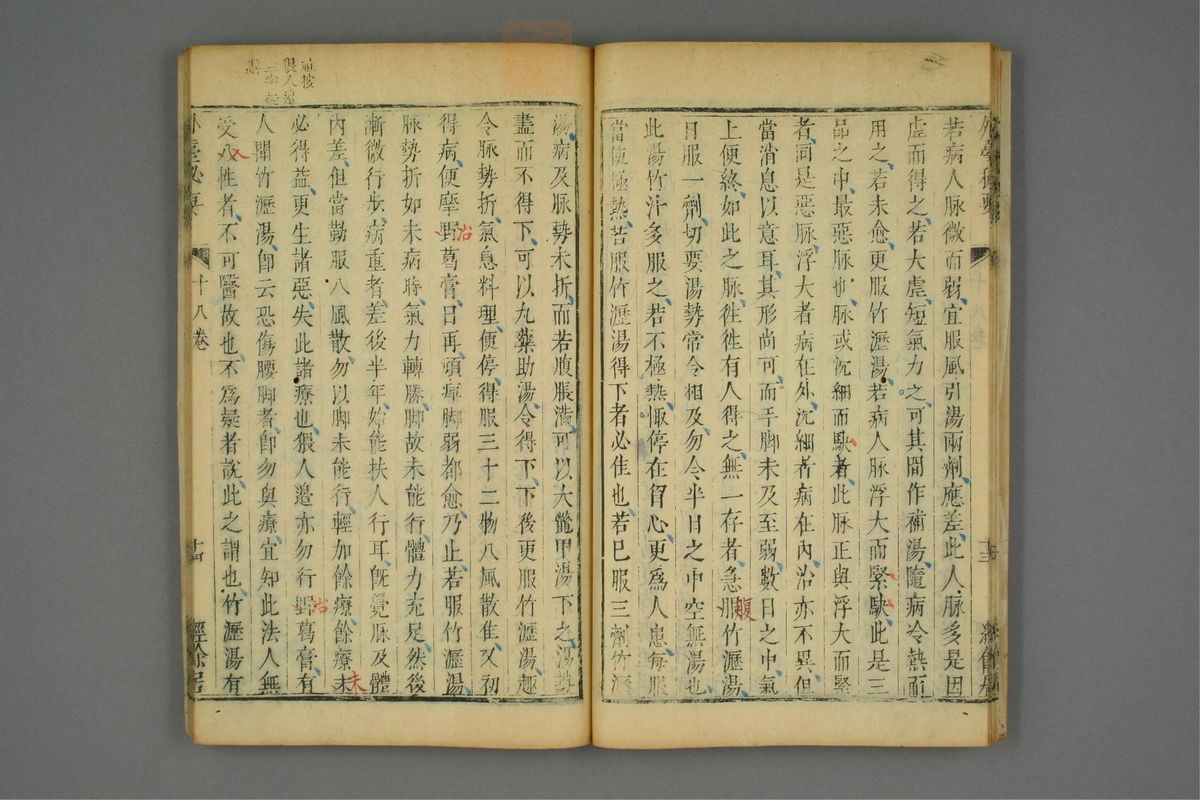 外臺秘要
十三
經餘居
若病人脉微而弱宜服風引湯兩劑應差此人脉多是因
虛而得之若大虛短氣力之可其間作補湯隨病冷熱而
用之若未愈更服竹瀝湯若病人脉浮大而緊駃此是三
品之中最惡脉也脉或沉細而駃者此脉正與浮大而緊
者同是惡脉浮大者病在外沉細者病在內治亦不異但
當消息以意耳其形尚可而手脚未及至弱數日之中氣
上便終如此之脉徃徃有人得之無一存者急服竹瀝湯
日服一劑切要湯勢常令相及勿令半日之中空無湯也
此湯竹汁多服之若不極熱慨停在胷心更爲人患每服
當使極熱若服竹瀝湯得下者必佳也若已服三劑竹瀝
湯病及脉勢未折而若腹脹滿可以大鼈甲湯下之湯勢
盡而不得下可以丸藥助湯令得下下後更服竹瀝湯趣
令脉勢折氣息料理便停得服三十二物八風散佳又初
得病便摩野葛膏日再頑痺脚弱都愈乃止若服竹瀝湯
脉勢折如未病時氣力轉勝脚故未能行體力充足然後
漸微行步病重者差後半年始能扶人行耳旣覺脉及體
內差但當勤服八風散勿以脚未能行輕加餘療餘療未
必得益更生諸惡失此諸療也猥人邉亦勿行野葛膏有
人聞竹瀝湯卽云恐傷腰脚者卽勿與療宜知此法人無
受八性者不可醫故也不爲疑者說此之謂也竹瀝湯有
外臺秘要
十八卷
十四
經餘居
腹
治
治
夫